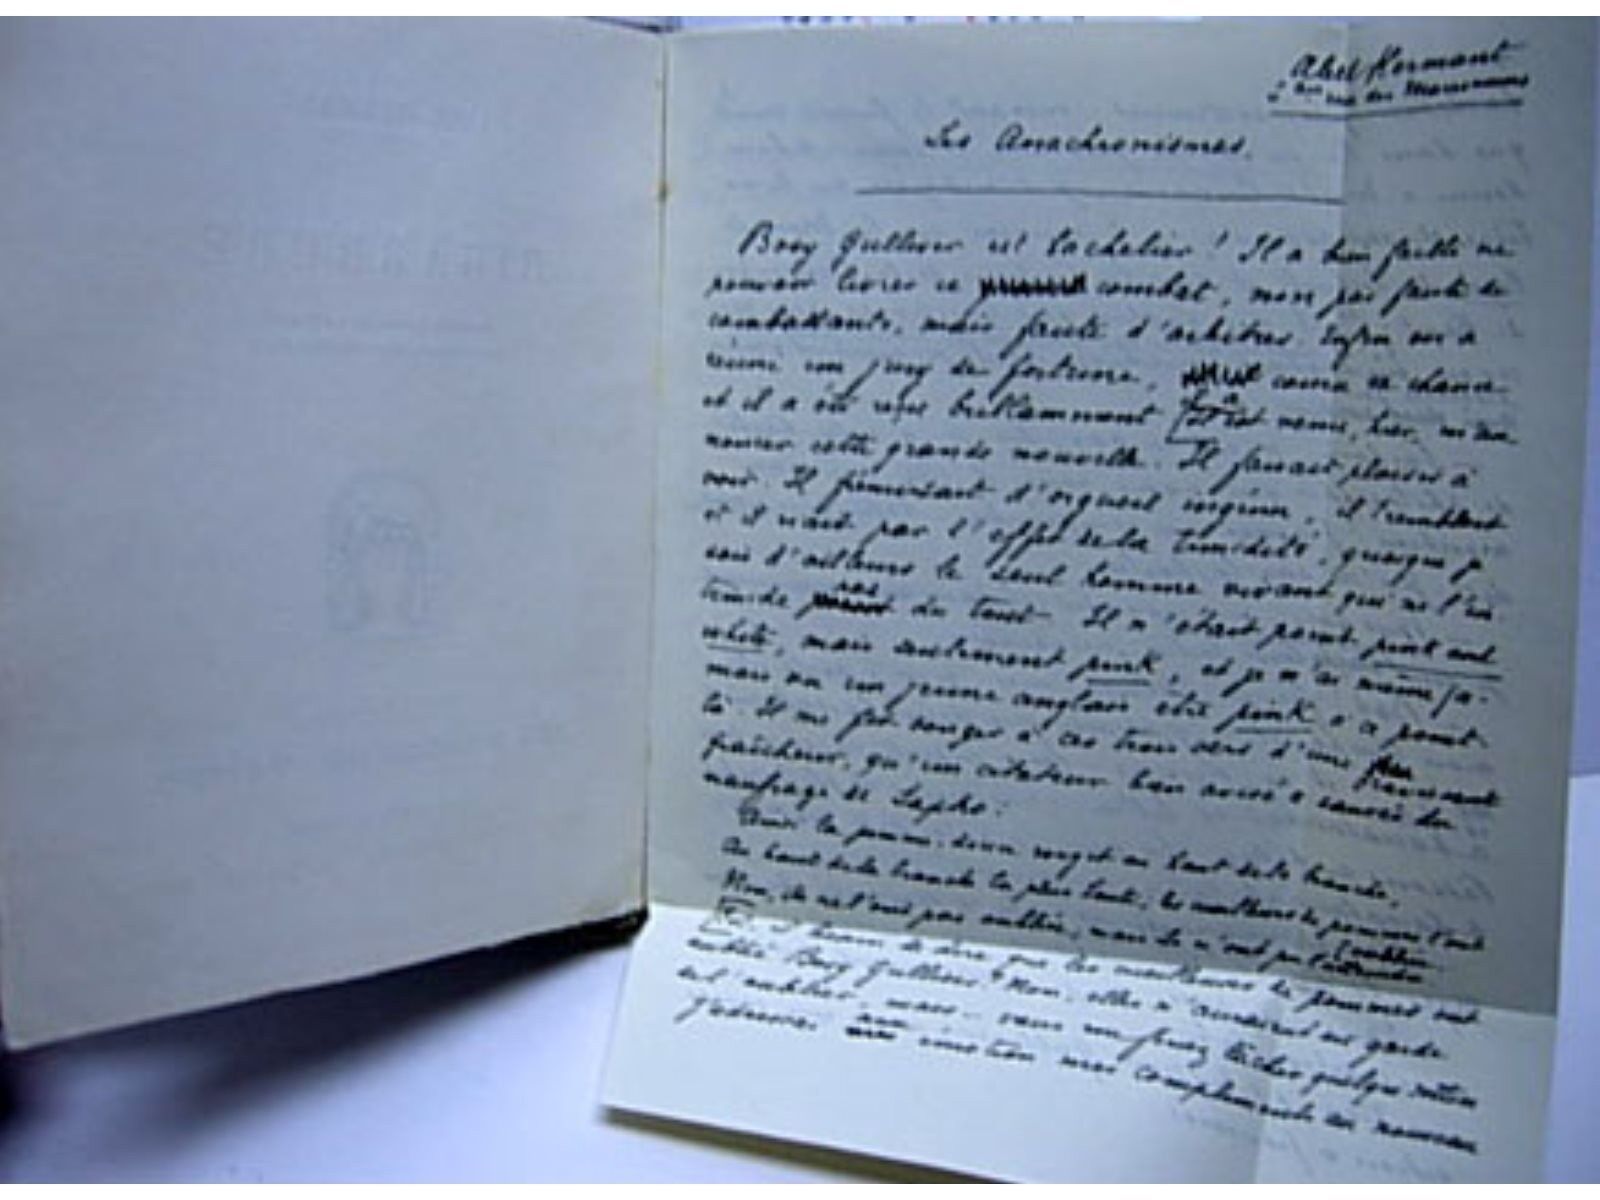 Abel Hermant
rue des
Les Anachronismes.
Bosy Gulliver est bachelier ! Il a bien failli ne
pouvoir livrer ce combat, non pas faute de
combattants, mais faute d'arbitres. Enfin on a
réuni un jury de fortune, couru sa chance
et il a été reçu brillamment. Il est venu, hier, m'an-
noncer cette grande nouvelle. Il faisait plaisir à
voir. Il frémissait d'orgueil ingénu, il tremblait
et il riait par l'effet de la timidité, quoique je
sois d'ailleurs le seul homme vivant qui ne l'in-
timide pas du tout. Il n'était point pink and
white, mais seulement pink, et je n'ai même ja-
mais vu un jeune anglais être pink à ce point-
là. Il me fit songer à ces trois vers d'une
fraîcheur, qu'un citateur bien avisé a sauvés du
naufrage de Sapho :
Ainsi la pomme douce rougit au haut de la branche,
Au haut de la branche la plus haute, les cueilleurs de pommes l'ont
Non, ils ne l'ont pas oubliée, mais ils n'ont pu l'atteindre
oublier.
besoin de dire que les cueilleurs de pommes ont
oublié Bosy Gulliver ? Non, elles n'auraient eu garde
de l'oublier, mais
J'adressai mes compliments au nouveau